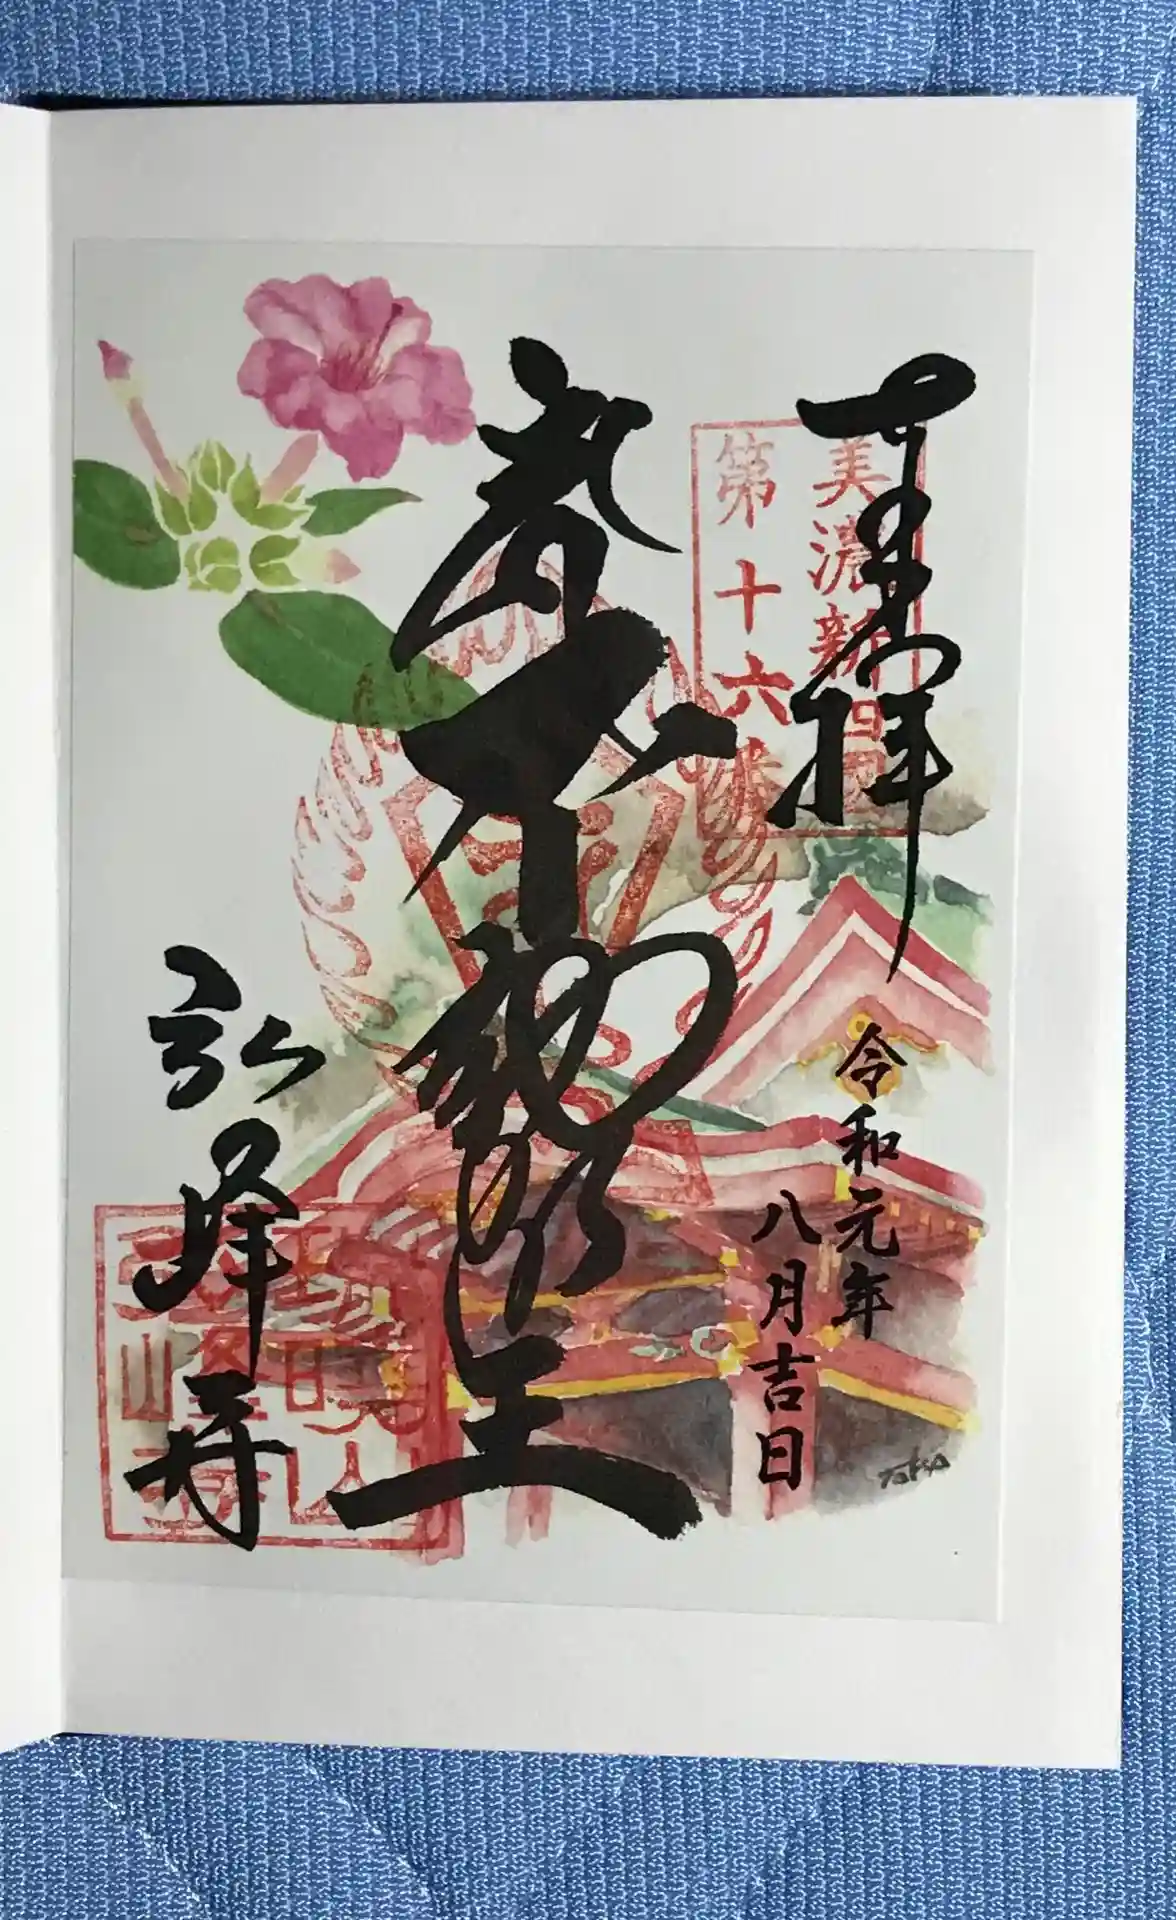 奉拝
美濃新四国
第十六番
令和元年
八月吉日
不動明王
弘峰寺